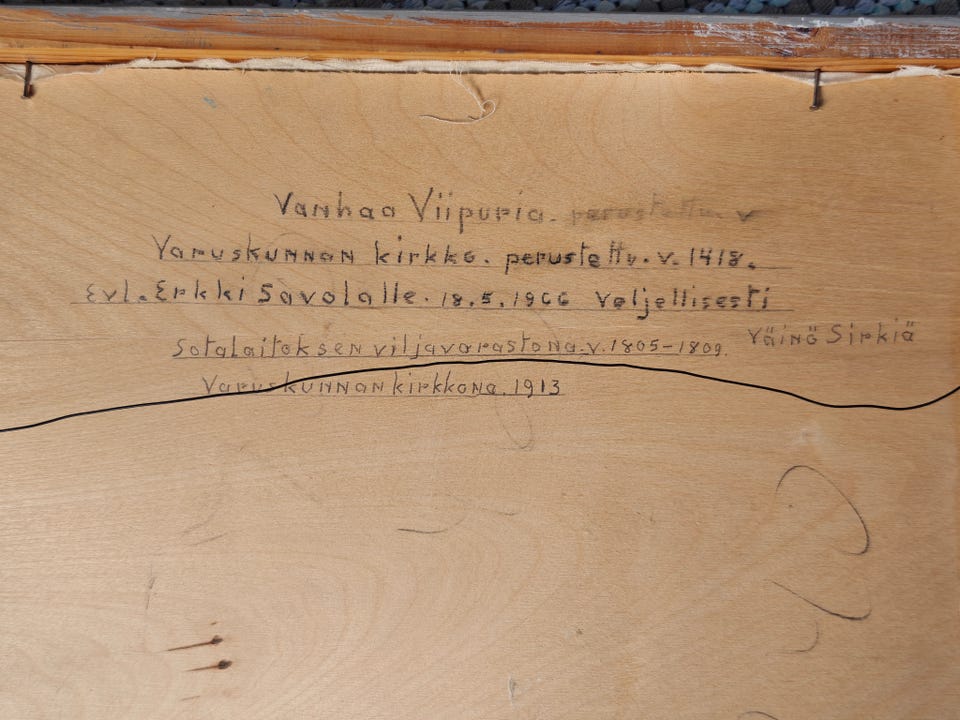 Vanhaa Viipuria. perustettu. v
Varuskunnan kirkko. perustettu. v. 1418.
Evl. Erkki Savolalle. 18.5.1966 Veljellisesti
Väinö Sirkiä
Sotalaitoksen viljavarastona. v. 1805-1809.
Varuskunnan kirkkona. 1913